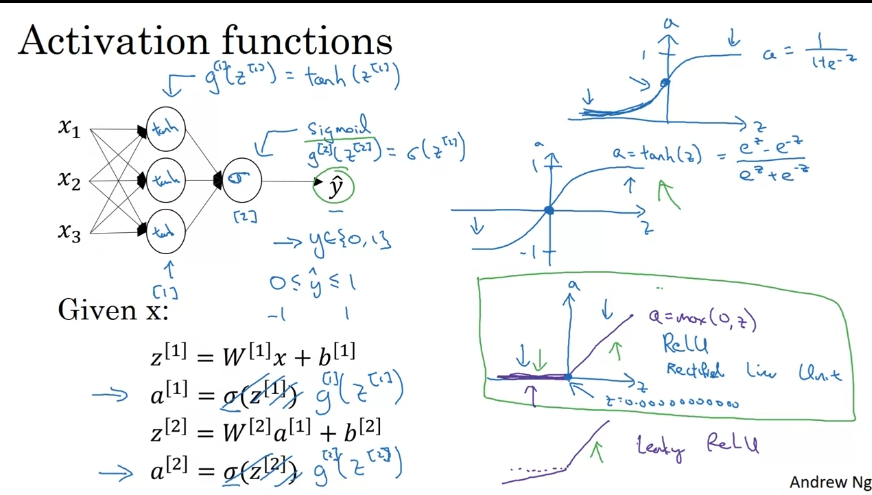 Activation functions
g^[1](z^[1]) = tanh(z^[1])
x₁
x₂
x₃
tanh
tanh
tanh
[1]
σ
[2]
sigmoid
g^[2](z^[2]) = σ(z^[2])
ŷ
→ y∈{0,1}
0 ≤ ŷ ≤ 1
-1 1
Given x:
z^[1] = W^[1]x + b^[1]
→ a^[1] = σ(z^[1]) g^[1](z^[1])
z^[2] = W^[2]a^[1] + b^[2]
→ a^[2] = σ(z^[2]) g^[2](z^[2])
a
1
z
a = 1/(1+e^-z)
a
1
-1
z
a = tanh(z) = (e^z - e^-z)/(e^z + e^-z)
a
z
a = max(0,z)
ReLU
Rectified Linear Unit
leaky ReLU
Andrew Ng